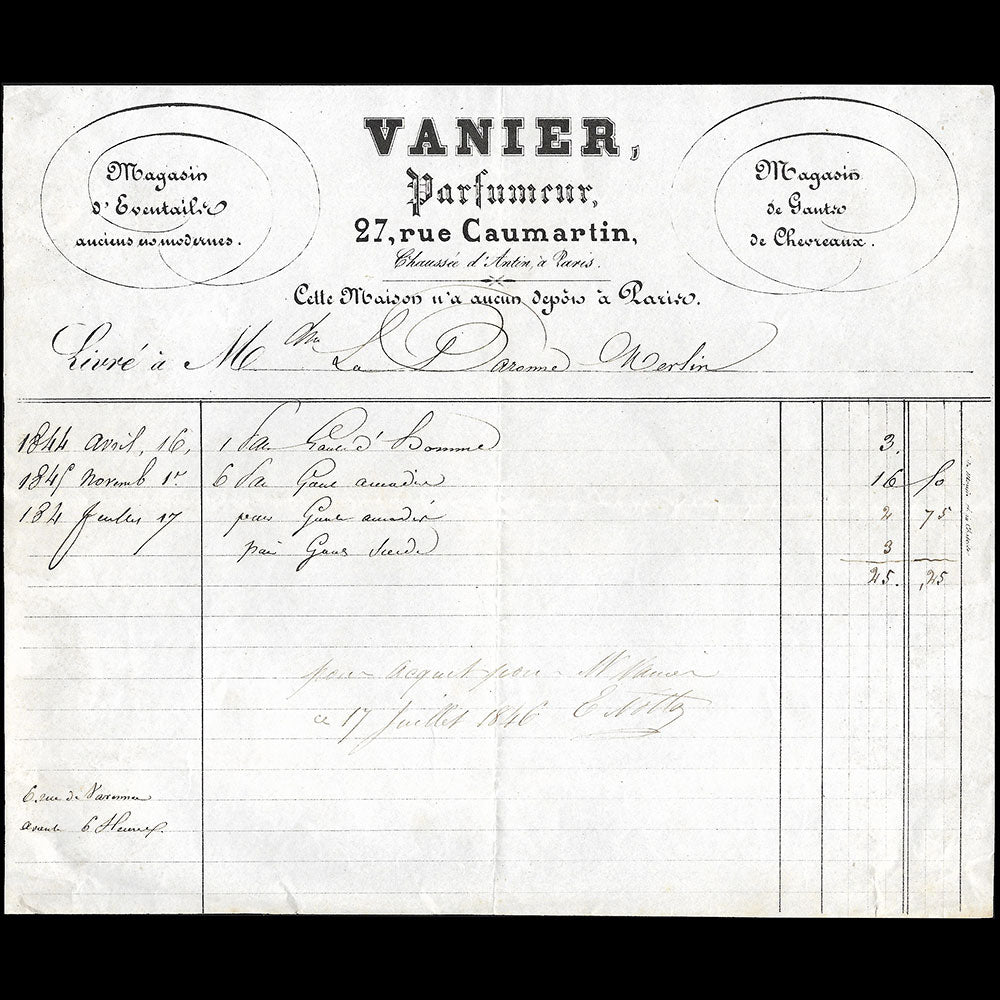 Magasin
d'Eventails
anciens et modernes.
VANIER,
Parfumeur,
27, rue Caumartin,
Chaussée d'Antin, à Paris.
Cette Maison n'a aucun dépôt à Paris.
Magasin
de Gants
de Chevreaux.
Livré à Mde La Baronne Merlin
1844 avril, 16, 1 Pai Gants d'Homme 3.
1845 Novemb 1er 6 Pai Gants amadis 16 50
184 Juillet 17 paire Gants amadis 2 75
pair Gants Suède 3
25. ,25
pour acquit pour Mr Vanier
ce 17 Juillet 1846
6 rue de Varenne
avant 6 Heures.